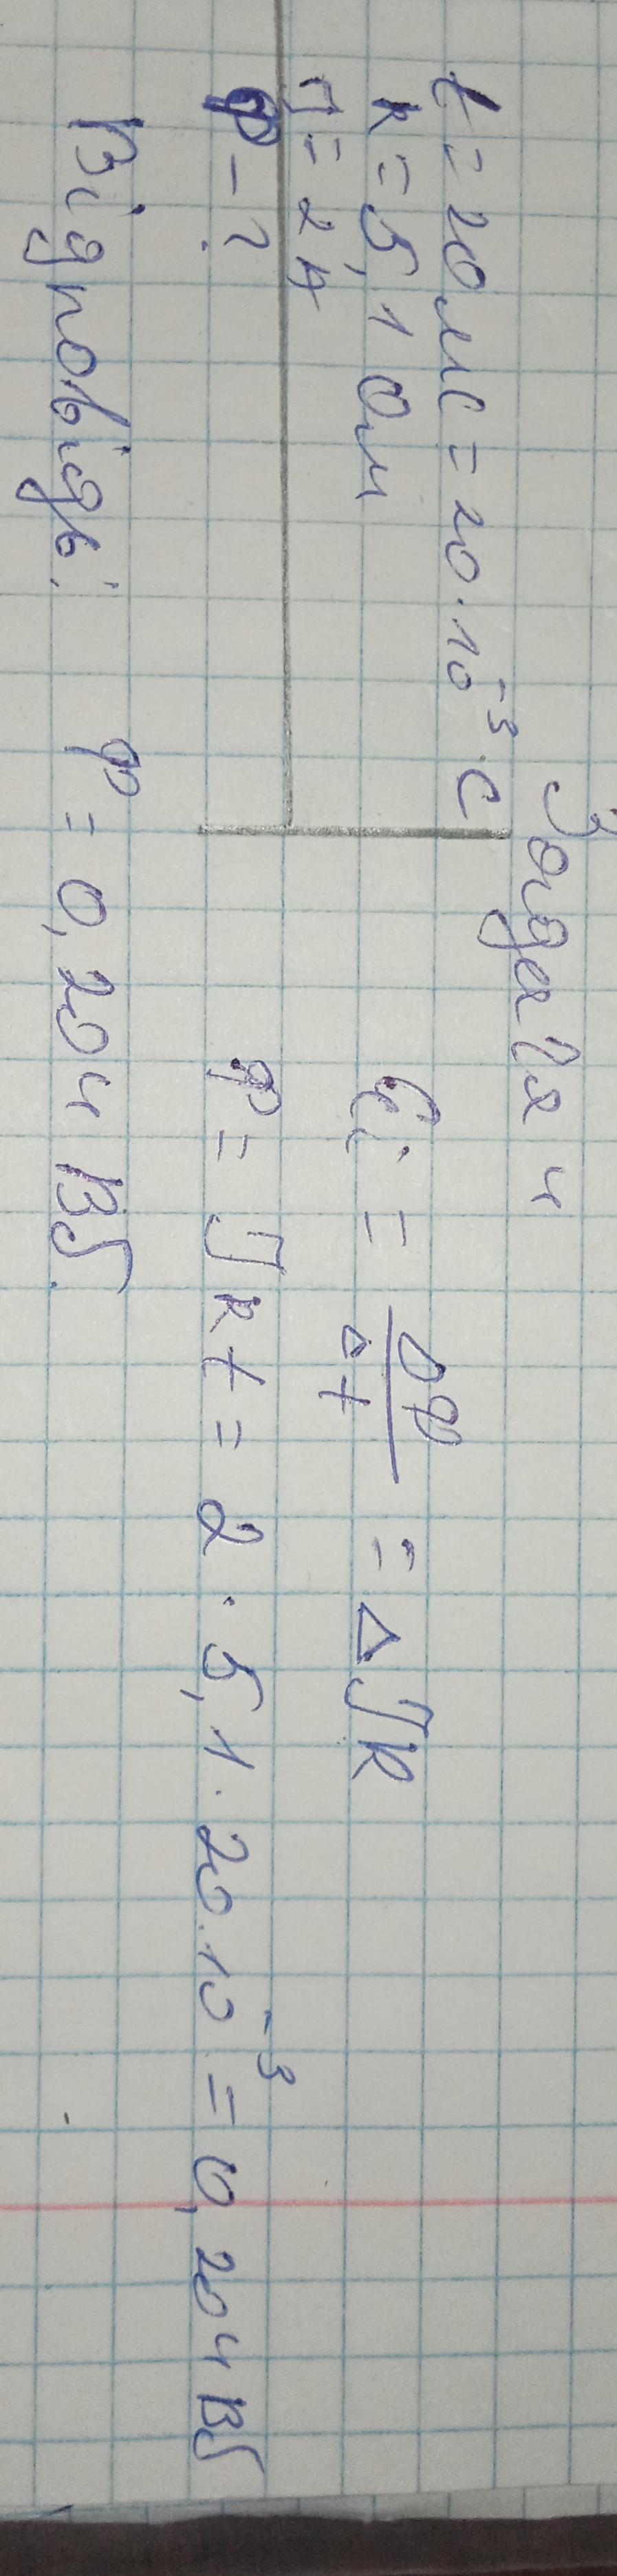 Задача 4
t = 20 мс = 20 · 10⁻³ с
R = 5,1 Ом
I = 2 A
Ф - ?
Ei = ΔФ / Δt = ΔIR
Ф = IRt = 2 · 5,1 · 20 · 10⁻³ = 0,204 Вб
Відповідь: Ф = 0,204 Вб.